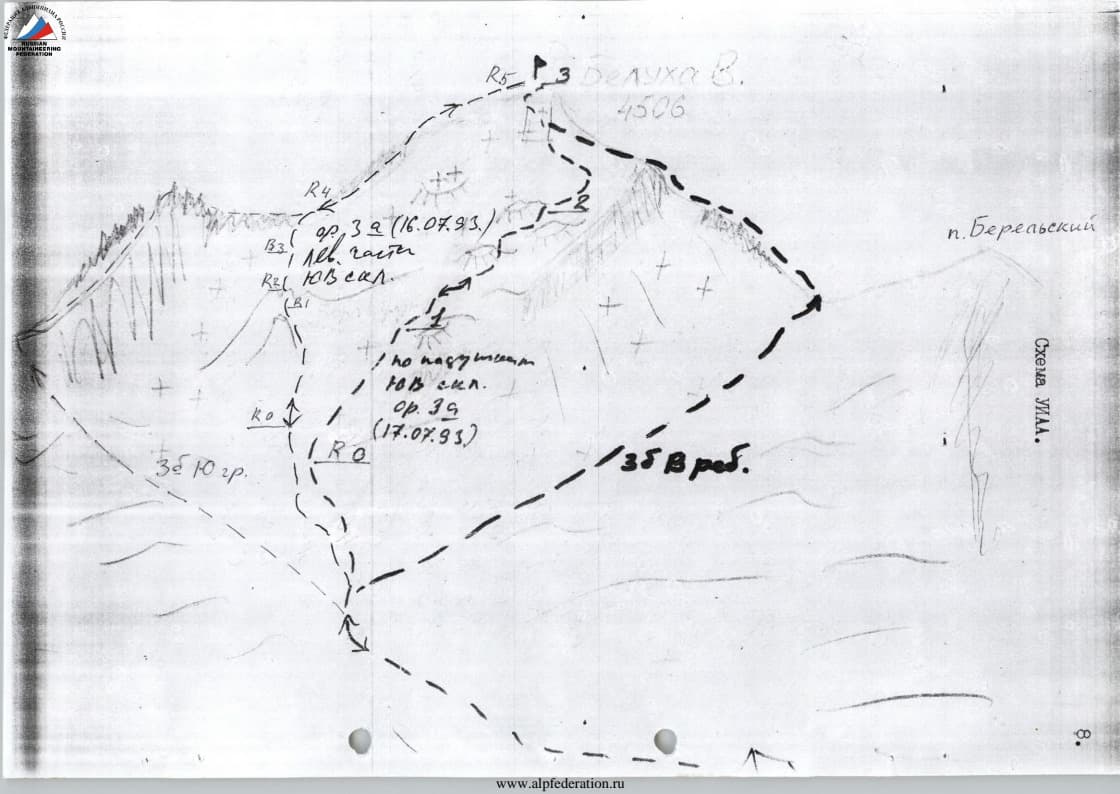 ФЕДЕРАЦИЯ АЛЬПИНИЗМА РОССИИ
RUSSIAN
MOUNTAINEERING
FEDERATION
R5
3
Белуха В.
4506
R4
ор. 3а (16.07.93.)
лев. части
ЮВ скл.
В3
R2
В1
2
1
п. Берельский
ЮВ скл.
ор. 3а
(17.07.93)
R0
R0
3б Ю гр.
3б В реб.
Схема УИАА.
8.
www.alpfederation.ru